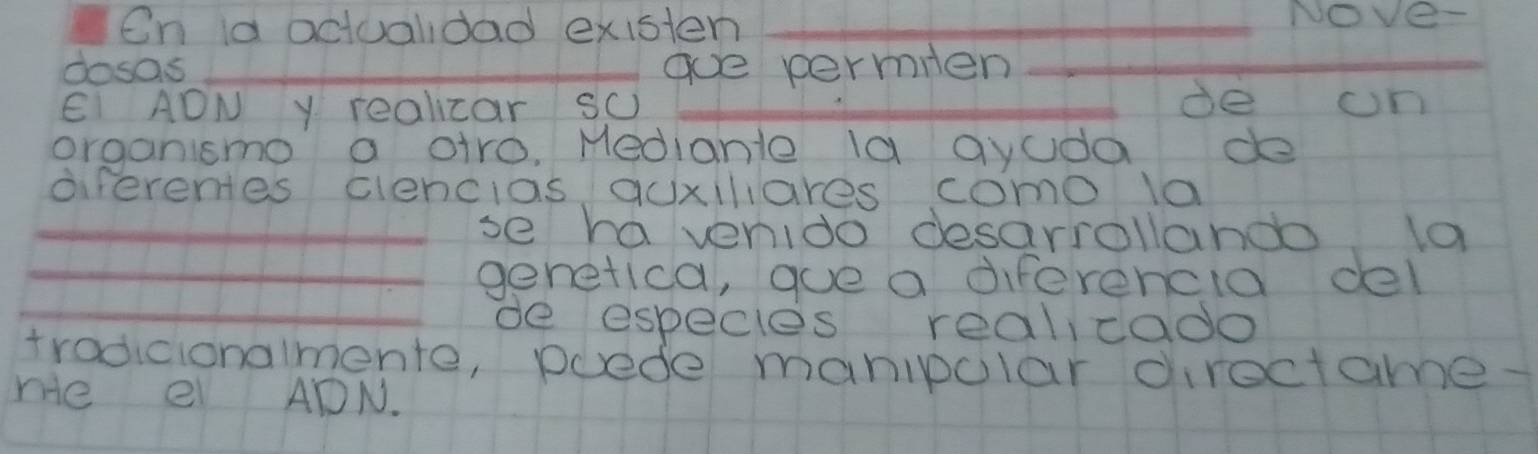 En la actualidad existen ____________ Nove-
dosas ____________ que permiten ____________
El ADN y realizar su ____________ de un
organismo a otro. Mediante la ayuda de
diferentes ciencias auxiliares como la
____________ se ha venido desarrollando la
____________ genetica, que a diferencia del
____________ de especies realizado
tradicionalmente, puede manipular directame-
nte el ADN.